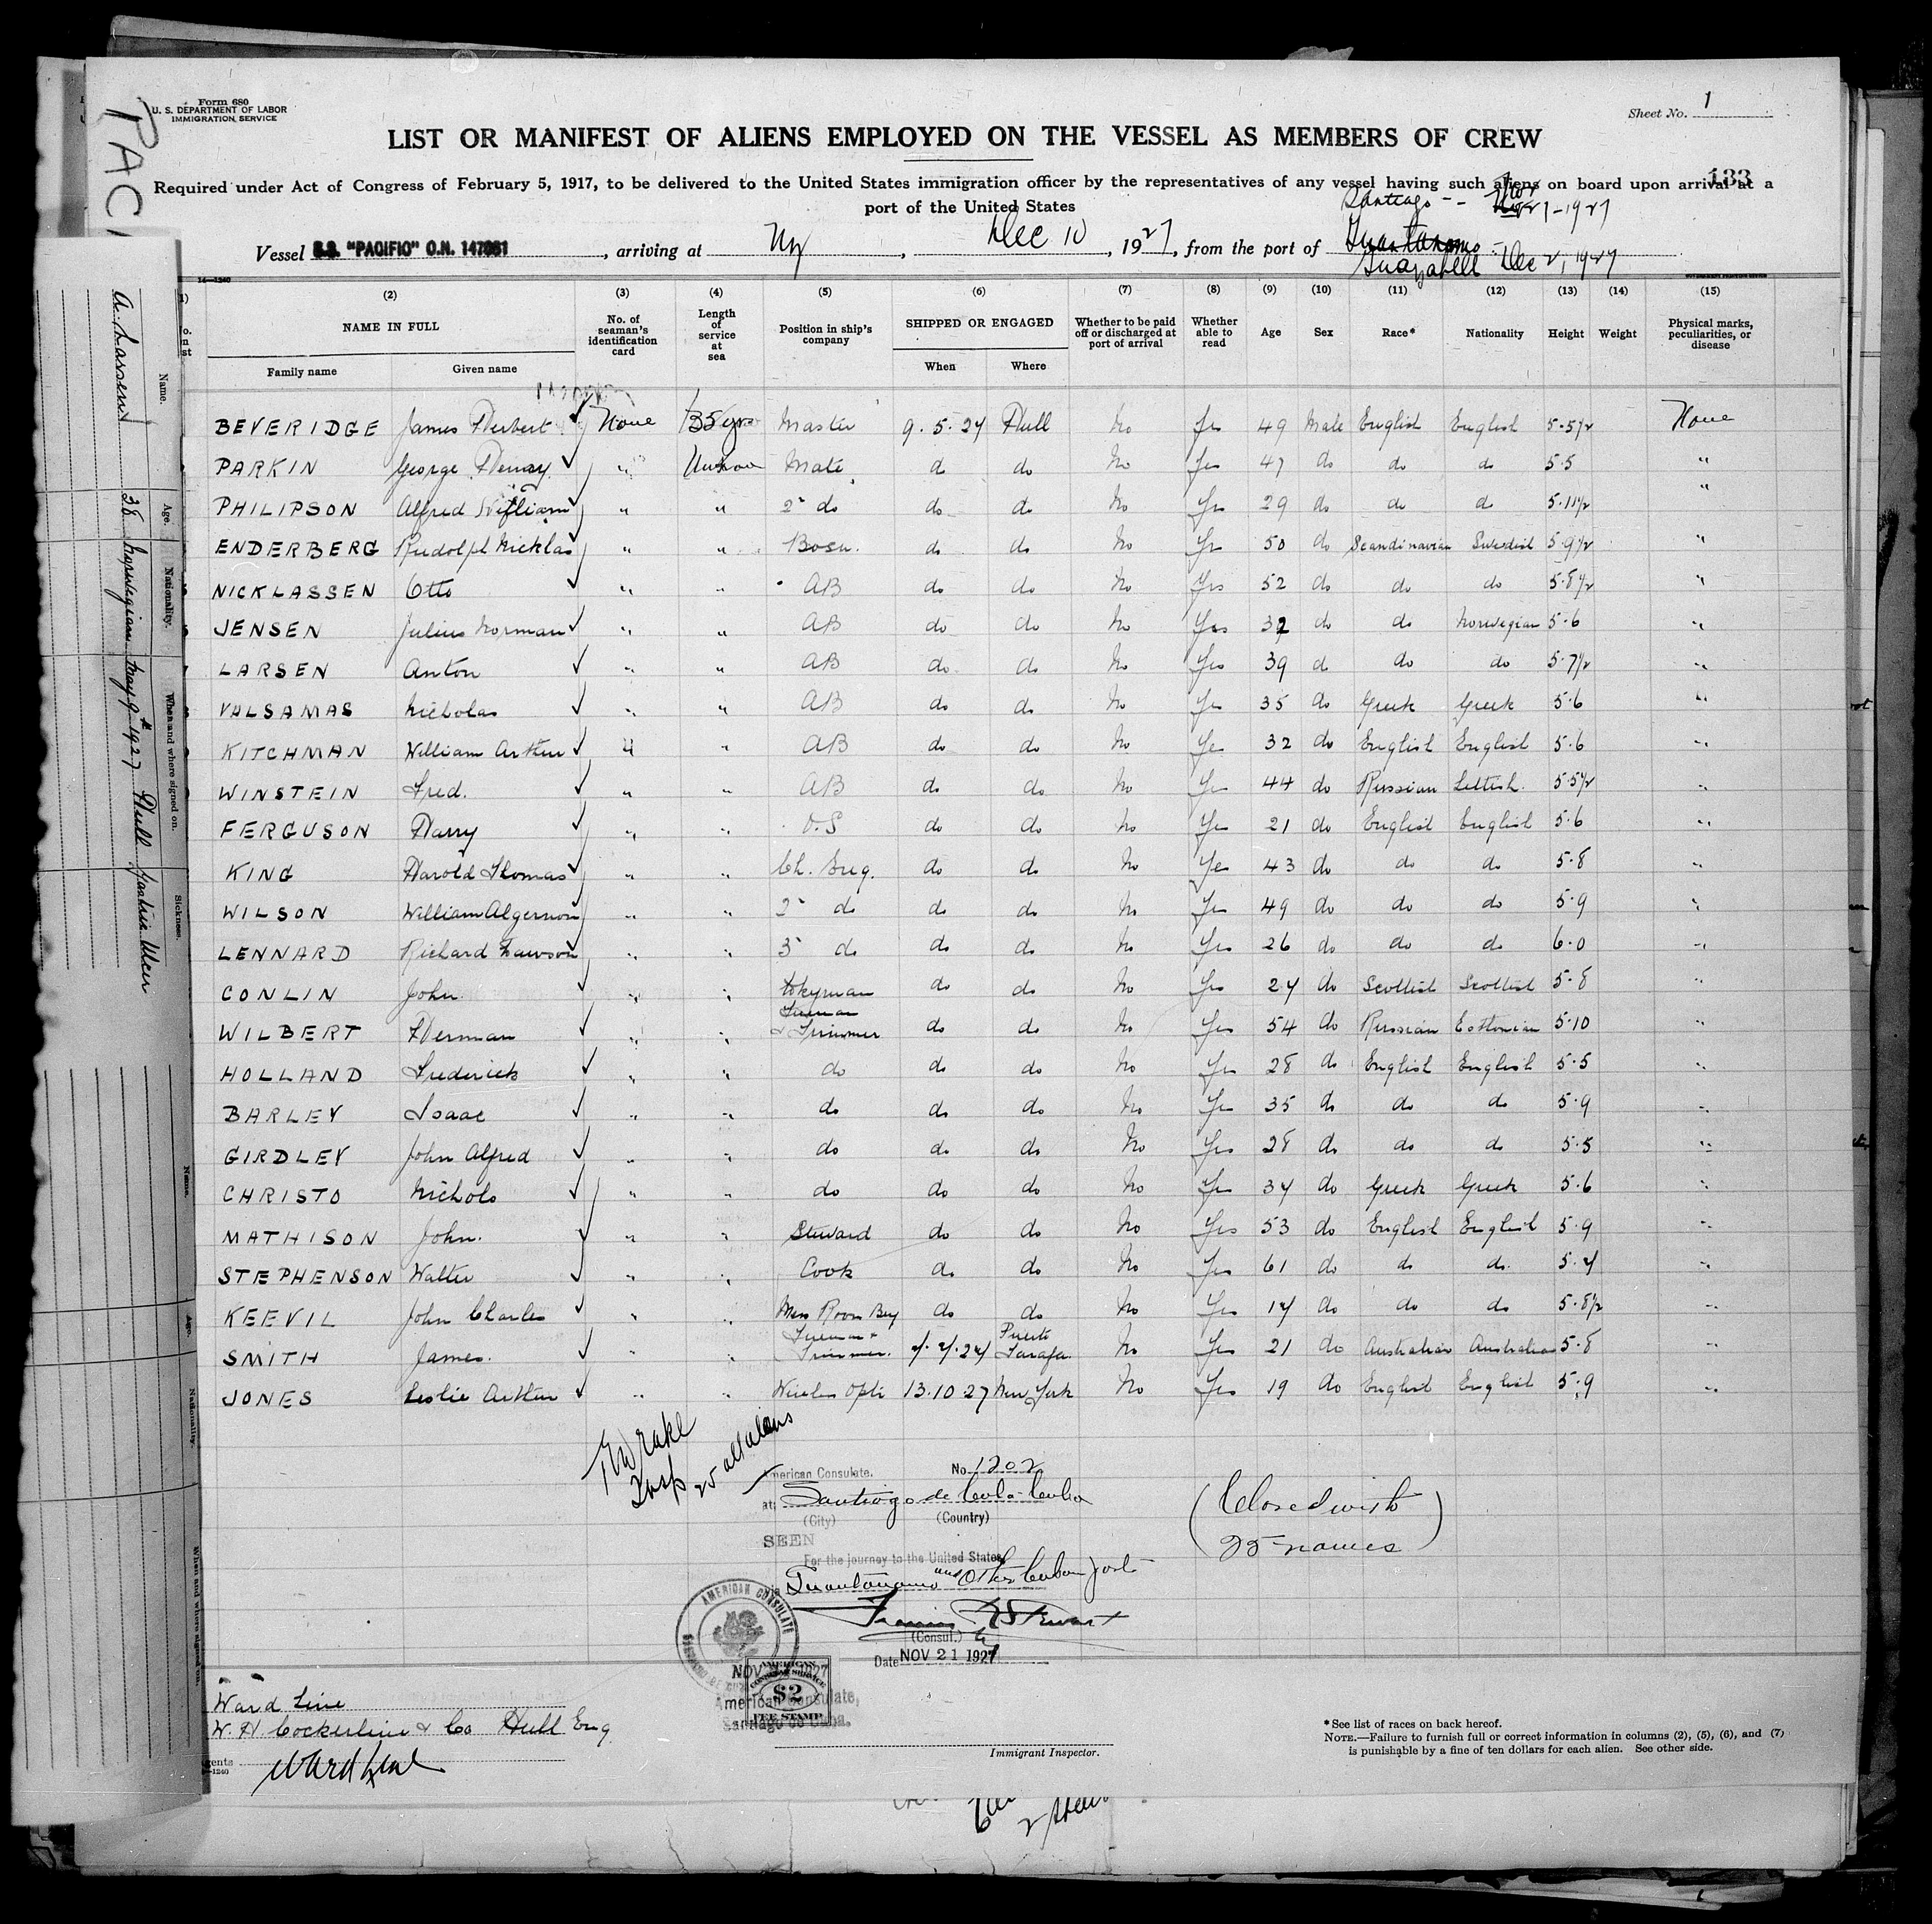 Form 680
U. S. DEPARTMENT OF LABOR
IMMIGRATION SERVICE
Sheet No. 1
LIST OR MANIFEST OF ALIENS EMPLOYED ON THE VESSEL AS MEMBERS OF CREW
133
Required under Act of Congress of February 5, 1917, to be delivered to the United States immigration officer by the representatives of any vessel having such aliens on board upon arrival at a
port of the United States
Santiago -- Nov 21-1927
Vessel S.S. "PACIFIC" O.N. 147061, arriving at NY, Dec 10, 1927, from the port of Guantanamo
Dec 2, 1927
14-1240
(2) (3) (4) (5) (6) (7) (8) (9) (10) (11) (12) (13) (14) (15)
NAME IN FULL No. of seaman's identification card Length of service at sea Position in ship's company SHIPPED OR ENGAGED Whether to be paid off or discharged at port of arrival Whether able to read Age Sex Race* Nationality Height Weight Physical marks, peculiarities, or disease
Family name Given name When Where
BEVERIDGE James Herbert None 35 yrs Master 9.5.27 Hull No Yes 49 Male English English 5-5½ None
PARKIN George Henry " Unknow Mate do do No Yes 47 do do do 5.5 "
PHILIPSON Alfred William " " 2" do do do No Yes 29 do do do 5.11½ "
ENDERBERG Rudolph Nicklas " " Bosn. do do No Yes 50 do Scandinavian Swedish 5.9½ "
NICKLASSEN Otto " " AB do do No Yes 52 do do do 5.8½ "
JENSEN Julius Norman " " AB do do No Yes 32 do do Norwegian 5.6 "
LARSEN Anton " " AB do do No Yes 39 do do do 5.7½ "
VALSAMAS Nicholas " " AB do do No Yes 35 do Greek Greek 5.6 "
KITCHMAN William Arthur " " AB do do No Yes 32 do English English 5.6 "
WINSTEIN Fred. " " AB do do No Yes 44 do Russian Lettish. 5.5½ "
FERGUSON Harry " " O.S do do No Yes 21 do English English 5.6 "
KING Harold Thomas " " Ch. Eng. do do No Yes 43 do do do 5.8 "
WILSON William Algernon " " 2" do do do No Yes 49 do do do 5.9 "
LENNARD Richard Lawson " " 3" do do do No Yes 26 do do do 6.0 "
CONLIN John " " Dkyman do do No Yes 24 do Scottish Scottish 5.8 "
WILBERT Herman " " Fireman & Trimmer do do No Yes 54 do Russian Esthonian 5.10 "
HOLLAND Frederick " " do do do No Yes 28 do English English 5.5 "
BARLEY Isaac " " do do do No Yes 35 do do do 5.9 "
GIRDLEY John Alfred " " do do do No Yes 28 do do do 5.5 "
CHRISTO Nichols " " do do do No Yes 34 do Greek Greek 5.6 "
MATHISON John. " " Steward do do No Yes 53 do English English 5.9 "
STEPHENSON Walter " " Cook do do No Yes 61 do do do 5.4 "
KEEVIL John Charles " " Mess Room Boy do do No Yes 17 do do do 5.8½ "
SMITH James. " " Fireman & Trimmer. 4.7.27 Puerto Tarafa. No Yes 21 do Australian Australian 5.8 "
JONES Leslie Arthur " " Wireless Optr 13.10 27 New York No Yes 19 do English English 5.9 "
Insp 25 all aliens
American Consulate. No. 1202
at Santiago de Cuba Cuba
(City) (Country)
SEEN
For the journey to the United States
via Guantanamo and Other Cuban ports
(Consul.)
Date NOV 21 1927
(Closed with
25 names)
AMERICAN CONSULATE
NOV 21 1927
AMERICAN CONSULAR SERVICE
$2
FEE STAMP
American Consulate,
Santiago de Cuba.
Ward Line
W. H Cockerline & Co Hull Eng
Agents
Ward Line
Immigrant Inspector.
*See list of races on back hereof.
NOTE.—Failure to furnish full or correct information in columns (2), (5), (6), and (7)
is punishable by a fine of ten dollars for each alien. See other side.
Name. Age. Nationality. When and where signed on. Sickness.
A. Larsen 38 Norwegian May 9th 1927 Hull
Name. Age. Nationality. When and where signed on.